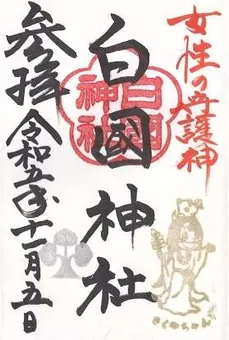 女性の守護神
白國神社
白国神社
参拝 令和五年十一月五日
さくやちゃん